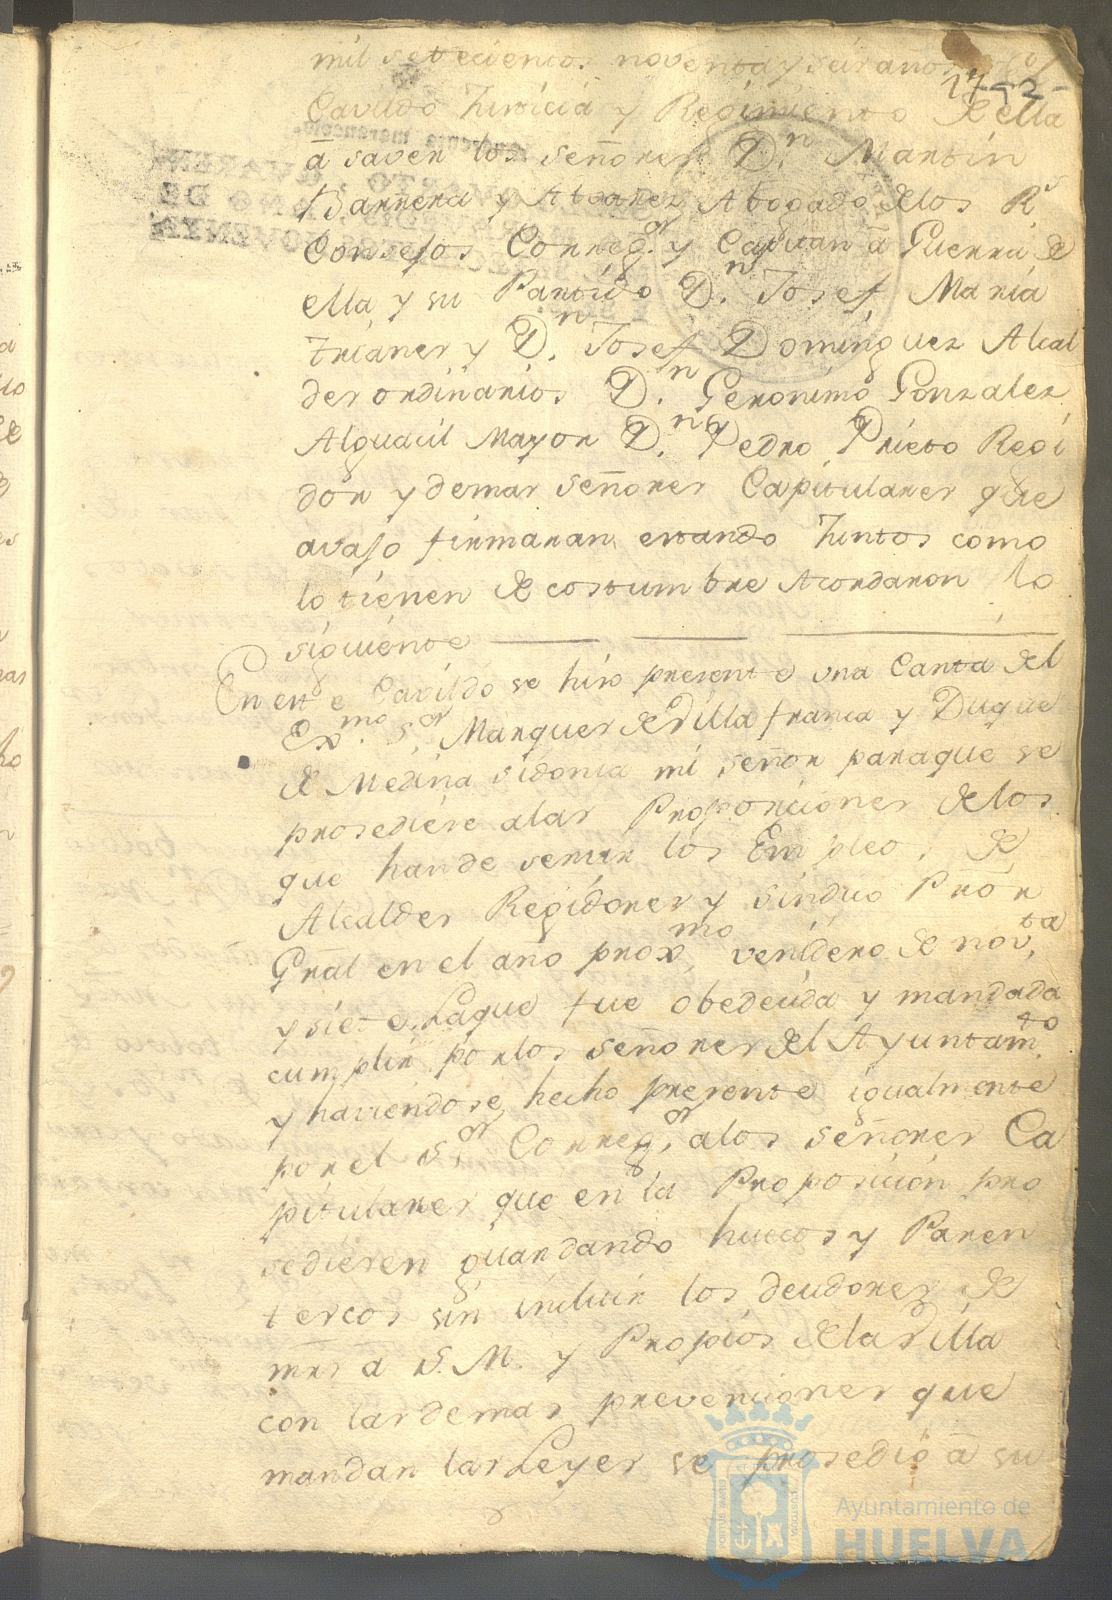 mil setecientos noventa y seis anos
17-2-
Cavildo Justicia y Regimiento de ella
â saver los señores Dn. Martin
Barrera y Alvarez Abogado de los Rs
Consejos Correg.or y Capitan â Guerra de
ella y su Partido Dn. Josef Maria
Trianes y Dn. Josef Dominguez Alcal
des ordinarios Dn. Geronimo Gonzalez
Alguacil Mayor Dn. Pedro Prieto Regi
dor y demas señores Capitulares que
avajo firmaran estando Juntos como
lo tienen de costumbre Acordaron lo
siguiente
En este Cavildo se hiso presente una Carta del
Exmo. Sor. Marques de Villafranca y Duque
de Medina sidonia mi señor para que se
prosediere a las Proposiciones de los
que han de servir los Empleos de
Alcaldes Regidores y sindico Prôr
Gral en el año proxmo. venidero de novta.
y siete. La que fue obedecida y mandada
cumplir por los señores del Ayuntamto.
y haviendose hecho presente igualmente
por el Sor. Correg.or a los señores Ca
pitulares que en la Proposicion pro
sedieren guardando huecos y Paren
tercos sin incluir los deudores de
mrs a S. M. y Propios de la Villa
con las demas prevenciones que
mandan las Leyes se prosedio â su
Ayuntamiento de
HUELVA